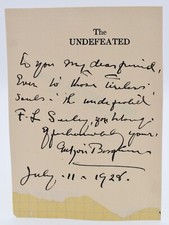 The
UNDEFEATED
To you my dear friend,
Ever to those tireless
souls - the undefeated
F. L. Seely, you belong.
Affectionately yours,
Gutzon Borglum
July - 11 - 1928.